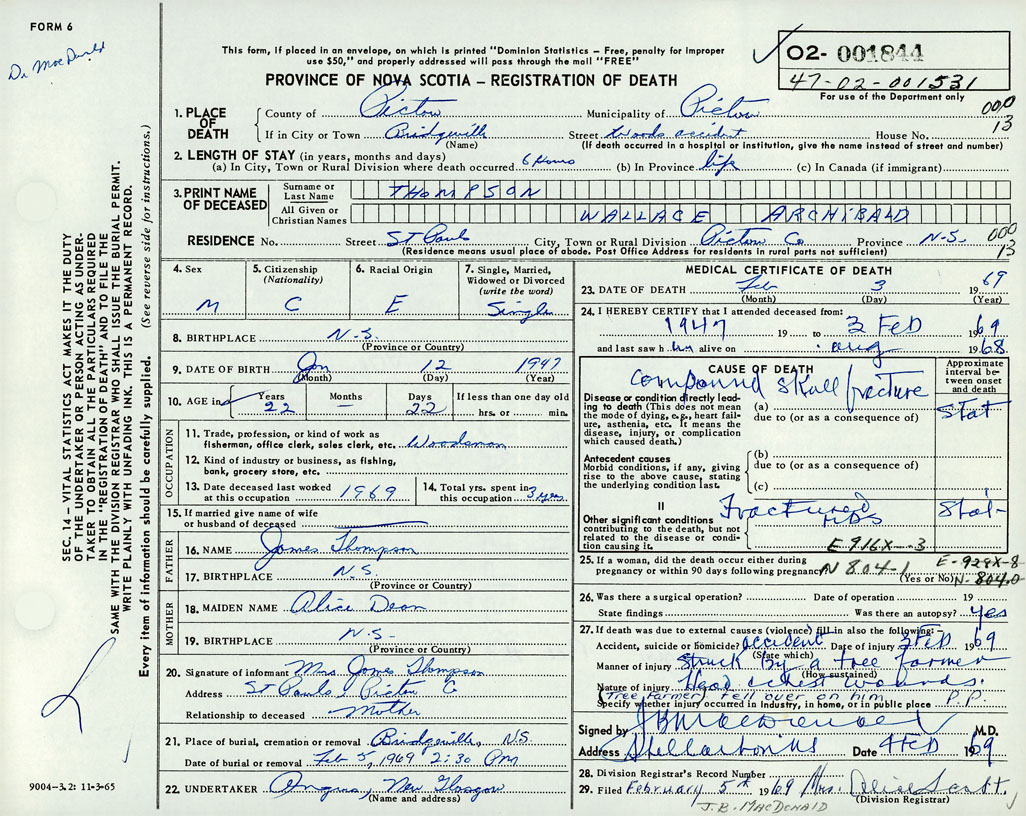 FORM 6
Dr MacDonald
This form, if placed in an envelope, on which is printed "Dominion Statistics – Free, penalty for improper
use $50," and properly addressed will pass through the mail "FREE"
PROVINCE OF NOVA SCOTIA – REGISTRATION OF DEATH
02- 001844
47-02-001531
For use of the Department only
000
13
1. PLACE OF DEATH
County of Pictou Municipality of Pictou
If in City or Town Bridgeville Street Woods accident House No.
(Name) (If death occurred in a hospital or institution, give the name instead of street and number)
2. LENGTH OF STAY (in years, months and days)
(a) In City, Town or Rural Division where death occurred 6 Hours (b) In Province life (c) In Canada (if immigrant)
3. PRINT NAME OF DECEASED
Surname or Last Name THOMPSON
All Given or Christian Names WALLACE ARCHIBALD
RESIDENCE No. Street St Pauls City, Town or Rural Division Pictou Co Province N.S. 000
13
(Residence means usual place of abode. Post Office Address for residents in rural parts not sufficient)
4. Sex
M
5. Citizenship
(Nationality)
C
6. Racial Origin
E
7. Single, Married,
Widowed or Divorced
(write the word)
Single
8. BIRTHPLACE N.S.
(Province or Country)
9. DATE OF BIRTH Jan 12 1947
(Month) (Day) (Year)
10. AGE in
Years
22
Months
—
Days
22
If less than one day old
hrs. or min.
OCCUPATION
11. Trade, profession, or kind of work as
fisherman, office clerk, sales clerk, etc. Woodsman
12. Kind of industry or business, as fishing,
bank, grocery store, etc.
13. Date deceased last worked
at this occupation 1969
14. Total yrs. spent in
this occupation 3 years
15. If married give name of wife
or husband of deceased
FATHER
16. NAME James Thompson
17. BIRTHPLACE N.S.
(Province or Country)
MOTHER
18. MAIDEN NAME Alice Dean
19. BIRTHPLACE N.S.
(Province or Country)
20. Signature of informant Mrs James Thompson
Address St Pauls Pictou C
Relationship to deceased Mother
21. Place of burial, cremation or removal Bridgeville, N.S.
Date of burial or removal Feb 5, 1969 2:30 PM
22. UNDERTAKER Angus, New Glasgow
(Name and address)
MEDICAL CERTIFICATE OF DEATH
23. DATE OF DEATH Feb 3 1969
(Month) (Day) (Year)
24. I HEREBY CERTIFY that I attended deceased from:
1947 19 to 3 FEB 1969
and last saw him alive on aug 1968
CAUSE OF DEATH
Approximate
interval be-
tween onset
and death
Compound skull fracture
Disease or condition directly lead-
ing to death (This does not
mean the mode of dying, e.g., heart fail-
ure, asthenia, etc. It means the
disease, injury, or complication
which caused death.)
(a)
due to (or as a consequence of)
Stat
Antecedent causes
Morbid conditions, if any, giving
rise to the above cause, stating
the underlying condition last.
(b)
due to (or as a consequence of)
(c)
II
Other significant conditions
contributing to the death, but not
related to the disease or condi-
tion causing it.
Fractured
Stat
E916X-3
25. If a woman, did the death occur either during
pregnancy or within 90 days following pregnancy
N 804-1
E-928X-8
(Yes or No) N-804.0
26. Was there a surgical operation? Date of operation 19
State findings Was there an autopsy? yes
27. If death was due to external causes (violence) fill in also the following:
Accident, suicide or homicide? accident Date of injury 3 FEB 1969
(State which)
Manner of injury Struck by a tree farmer
(How sustained)
Nature of injury Head & chest wounds.
(Tree farmer) fell over on him P.P.
Specify whether injury occurred in industry, in home, or in public place
Signed by M.D.
Address Stellarton NS Date 4 FEB 1969
28. Division Registrar's Record Number
29. Filed February 5th 1969 Mrs. Alice Scott.
(Division Registrar)
J.B. MACDONALD
SEC. 14 – VITAL STATISTICS ACT MAKES IT THE DUTY
OF THE UNDERTAKER OR PERSON ACTING AS UNDER-
TAKER TO OBTAIN ALL THE PARTICULARS REQUIRED
IN THE "REGISTRATION OF DEATH" AND TO FILE THE
SAME WITH THE DIVISION REGISTRAR WHO SHALL ISSUE THE BURIAL PERMIT.
WRITE PLAINLY WITH UNFADING INK. THIS IS A PERMANENT RECORD.
Every item of information should be carefully supplied. (See reverse side for instructions.)
9004-3.2: 11-3-65